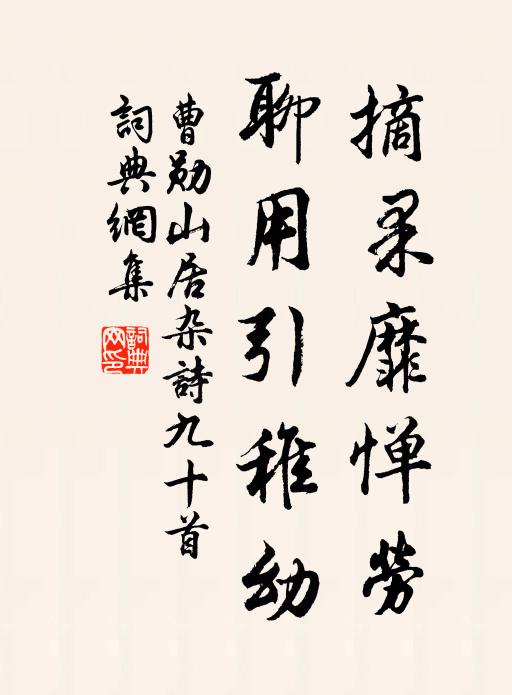 摘采靡惮勞
聊用引稚幼
曹勋山居杂詩九十首
詞典網集
詞典网印